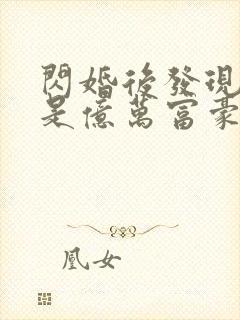 閃婚後發現
是億萬富豪
凰女